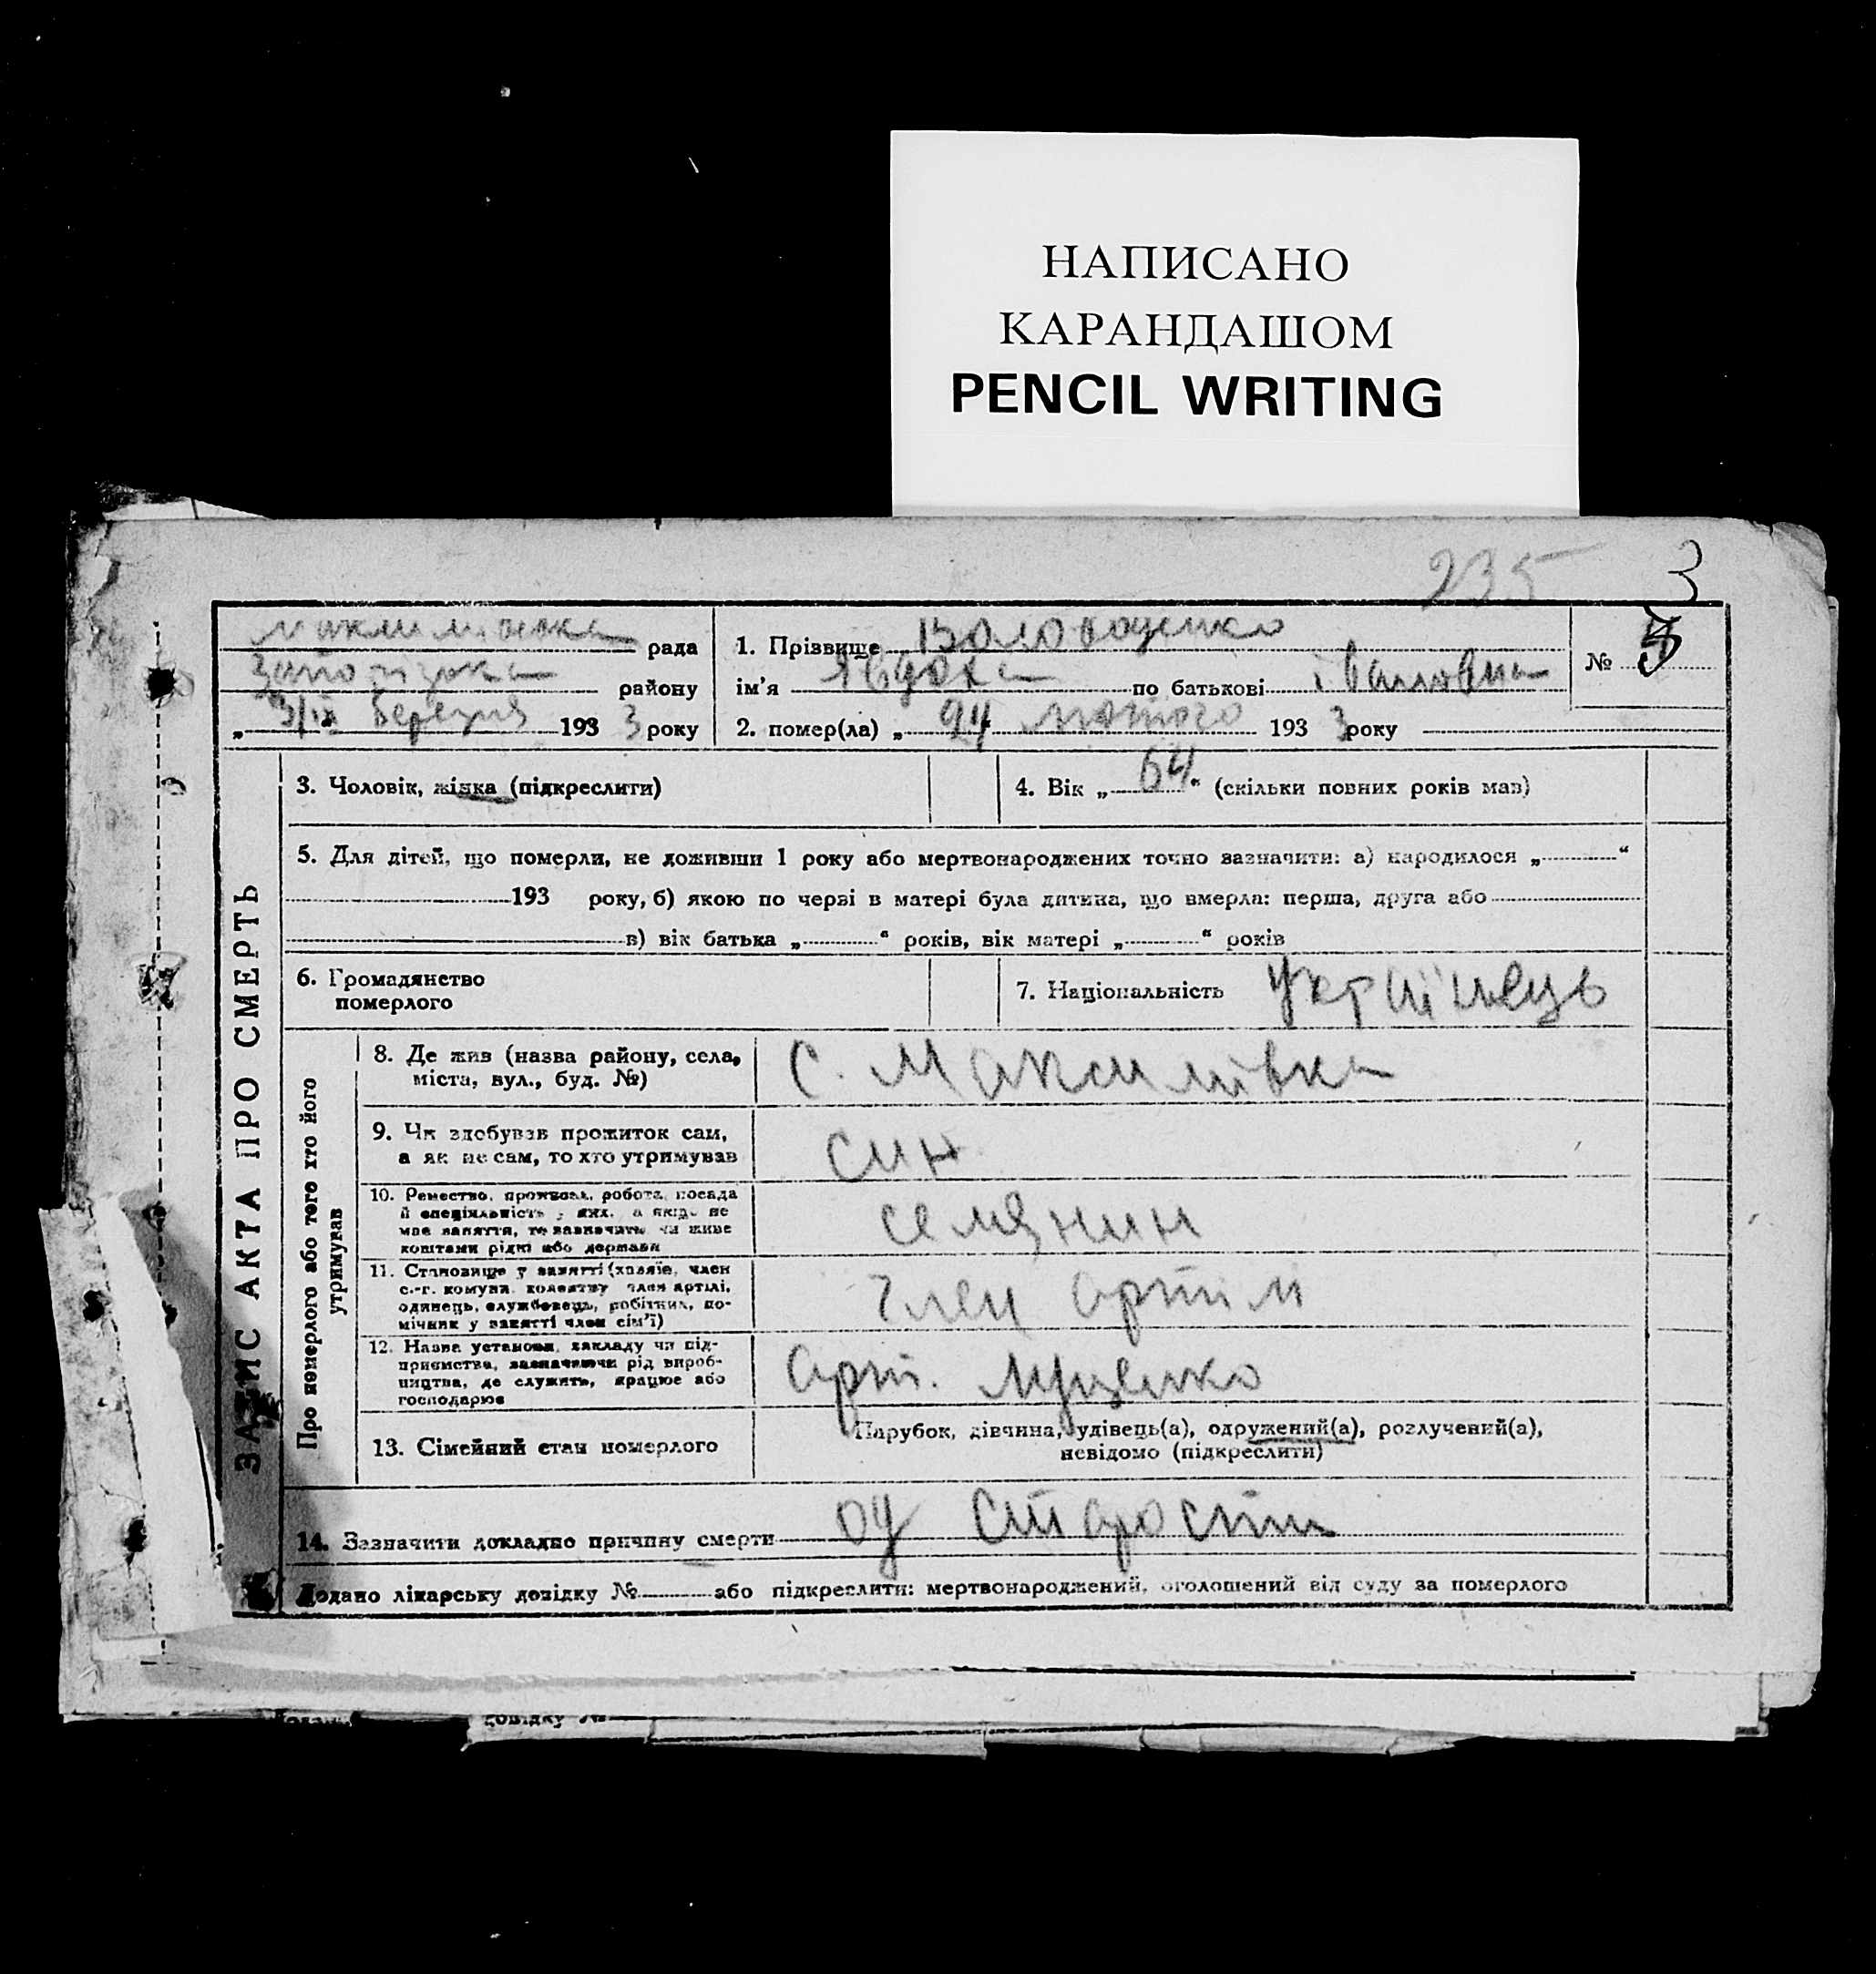 НАПИСАНО
КАРАНДАШОМ
PENCIL WRITING
235 3
рада
району
березня 193 3 року
1. Прізвище
ім'я Явдоха по батькові Івановна
2. помер(ла) „ 24 лютого 193 3 року
№ 3
ЗАПИС АКТА ПРО СМЕРТЬ
3. Чоловік, жінка (підкреслити)
4. Вік „ 64 “ (скільки повних років мав)
5. Для дітей, що померли, не доживши 1 року або мертвонароджених точно зазначити: а) народилося „ “
193 року, б) якою по черзі в матері була дитина, що вмерла: перша, друга або
в) вік батька „ “ років, вік матері „ “ років
6. Громадянство
померлого
7. Національність Украінець
Про померлого або того хто його
утримував
8. Де жив (назва району, села,
міста, вул., буд. №)
С. Максимівка
9. Чи здобував прожиток сам,
а як не сам, то хто утримував
син
10. Ремество, промисел, робота, посада
й спеціяльність у них, а якщо не
мав заняття, то зазначити чи живе
коштами рідні або держави
селянин
11. Становище у занятті (хазяїн, член
с.-г. комуни, колективу член артілі,
одинець, службовець, робітник, по-
мічник у занятті член сім'ї)
член артіли
12. Назва установи, закладу чи під-
приємства, зазначаючи рід вироб-
ництва, де служить, працює або
господарює
Арт.
13. Сімейний стан померлого
Парубок, дівчина, удівець(а), одружений(а), розлучений(а),
невідомо (підкреслити)
14. Зазначити докладно причину смерти од старости
Додано лікарську довідку № або підкреслити: мертвонароджений, оголошений від суду за померлого
довідку №